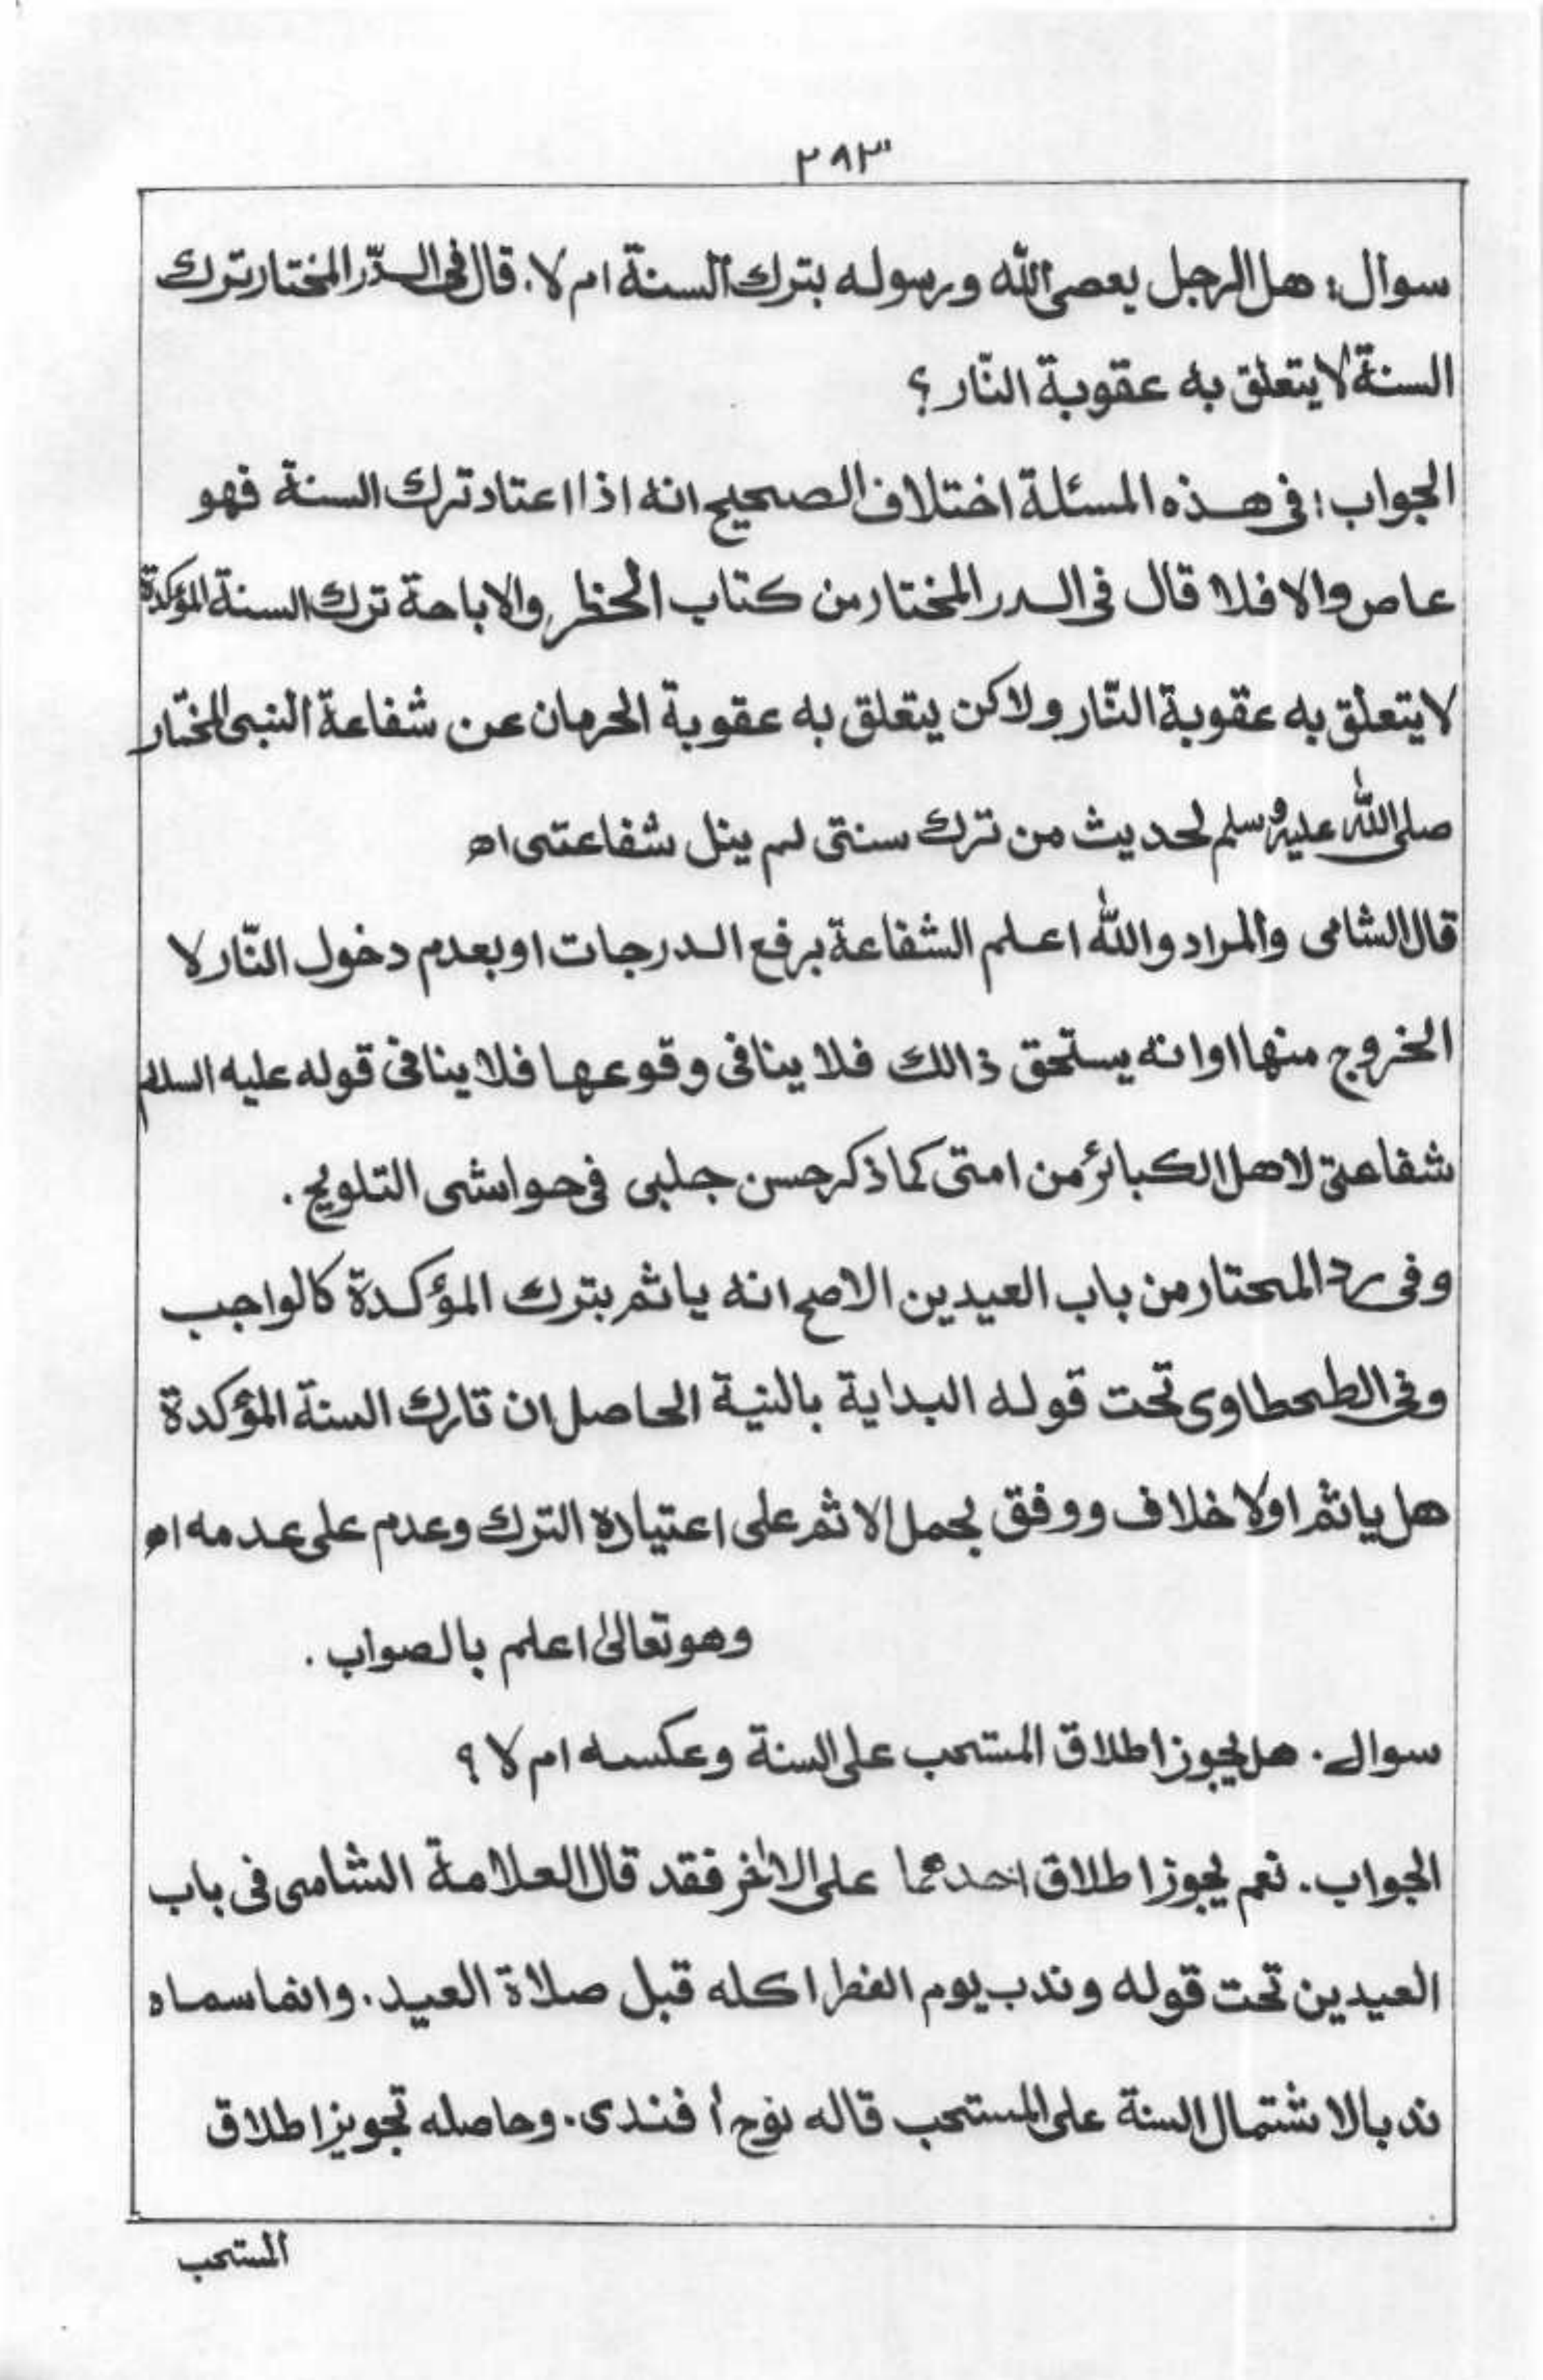 ٢٩٣
سوال: هل الرجل يعصى الله ورسوله بترك السنة ام لا، قال فى الدّر المختار ترك
السنة لا يتعلق به عقوبة النّار؟
الجواب: فى هذه المسئلة اختلاف الصحيح انه اذا اعتاد ترك السنة فهو
عاص والا فلا قال فى الدر المختار من كتاب الحظر والاباحة ترك السنة المؤكدة
لا يتعلق به عقوبة النّار ولاكن يتعلق به عقوبة الحرمان عن شفاعة النبى المختار
صلى الله عليه وسلم لحديث من ترك سنتى لم ينل شفاعتى اه
قال الشامى والمراد والله اعلم الشفاعة برفع الدرجات او بعدم دخول النّار لا
الخروج منها او انه يستحق ذالك فلا ينافى وقوعها فلا ينافى قوله عليه السلام
شفاعتى لاهل الكبائر من امتى كما ذكر حسن جلبى فى حواشى التلويح.
وفى رد المحتار من باب العيدين الاصح انه ياثم بترك المؤكدة كالواجب
وفى الطحطاوى تحت قوله البداية بالنية الحاصل ان تارك السنة المؤكدة
هل ياثم اولا خلاف ووفق بحمل الاثم على اعتياده الترك وعدم على عدمه اه
وهو تعالىٰ اعلم بالصواب.
سوال. هل يجوز اطلاق المستحب على السنة وعكسه ام لا؟
الجواب. نعم يجوز اطلاق احدهما على الاٰخر فقد قال العلامة الشامى فى باب
العيدين تحت قوله وندب يوم الفطر اكله قبل صلاة العيد. وانما سماه
ندبا لاشتمال السنة على المستحب قاله نوح أفندى. وحاصله تجويز اطلاق
المستحب